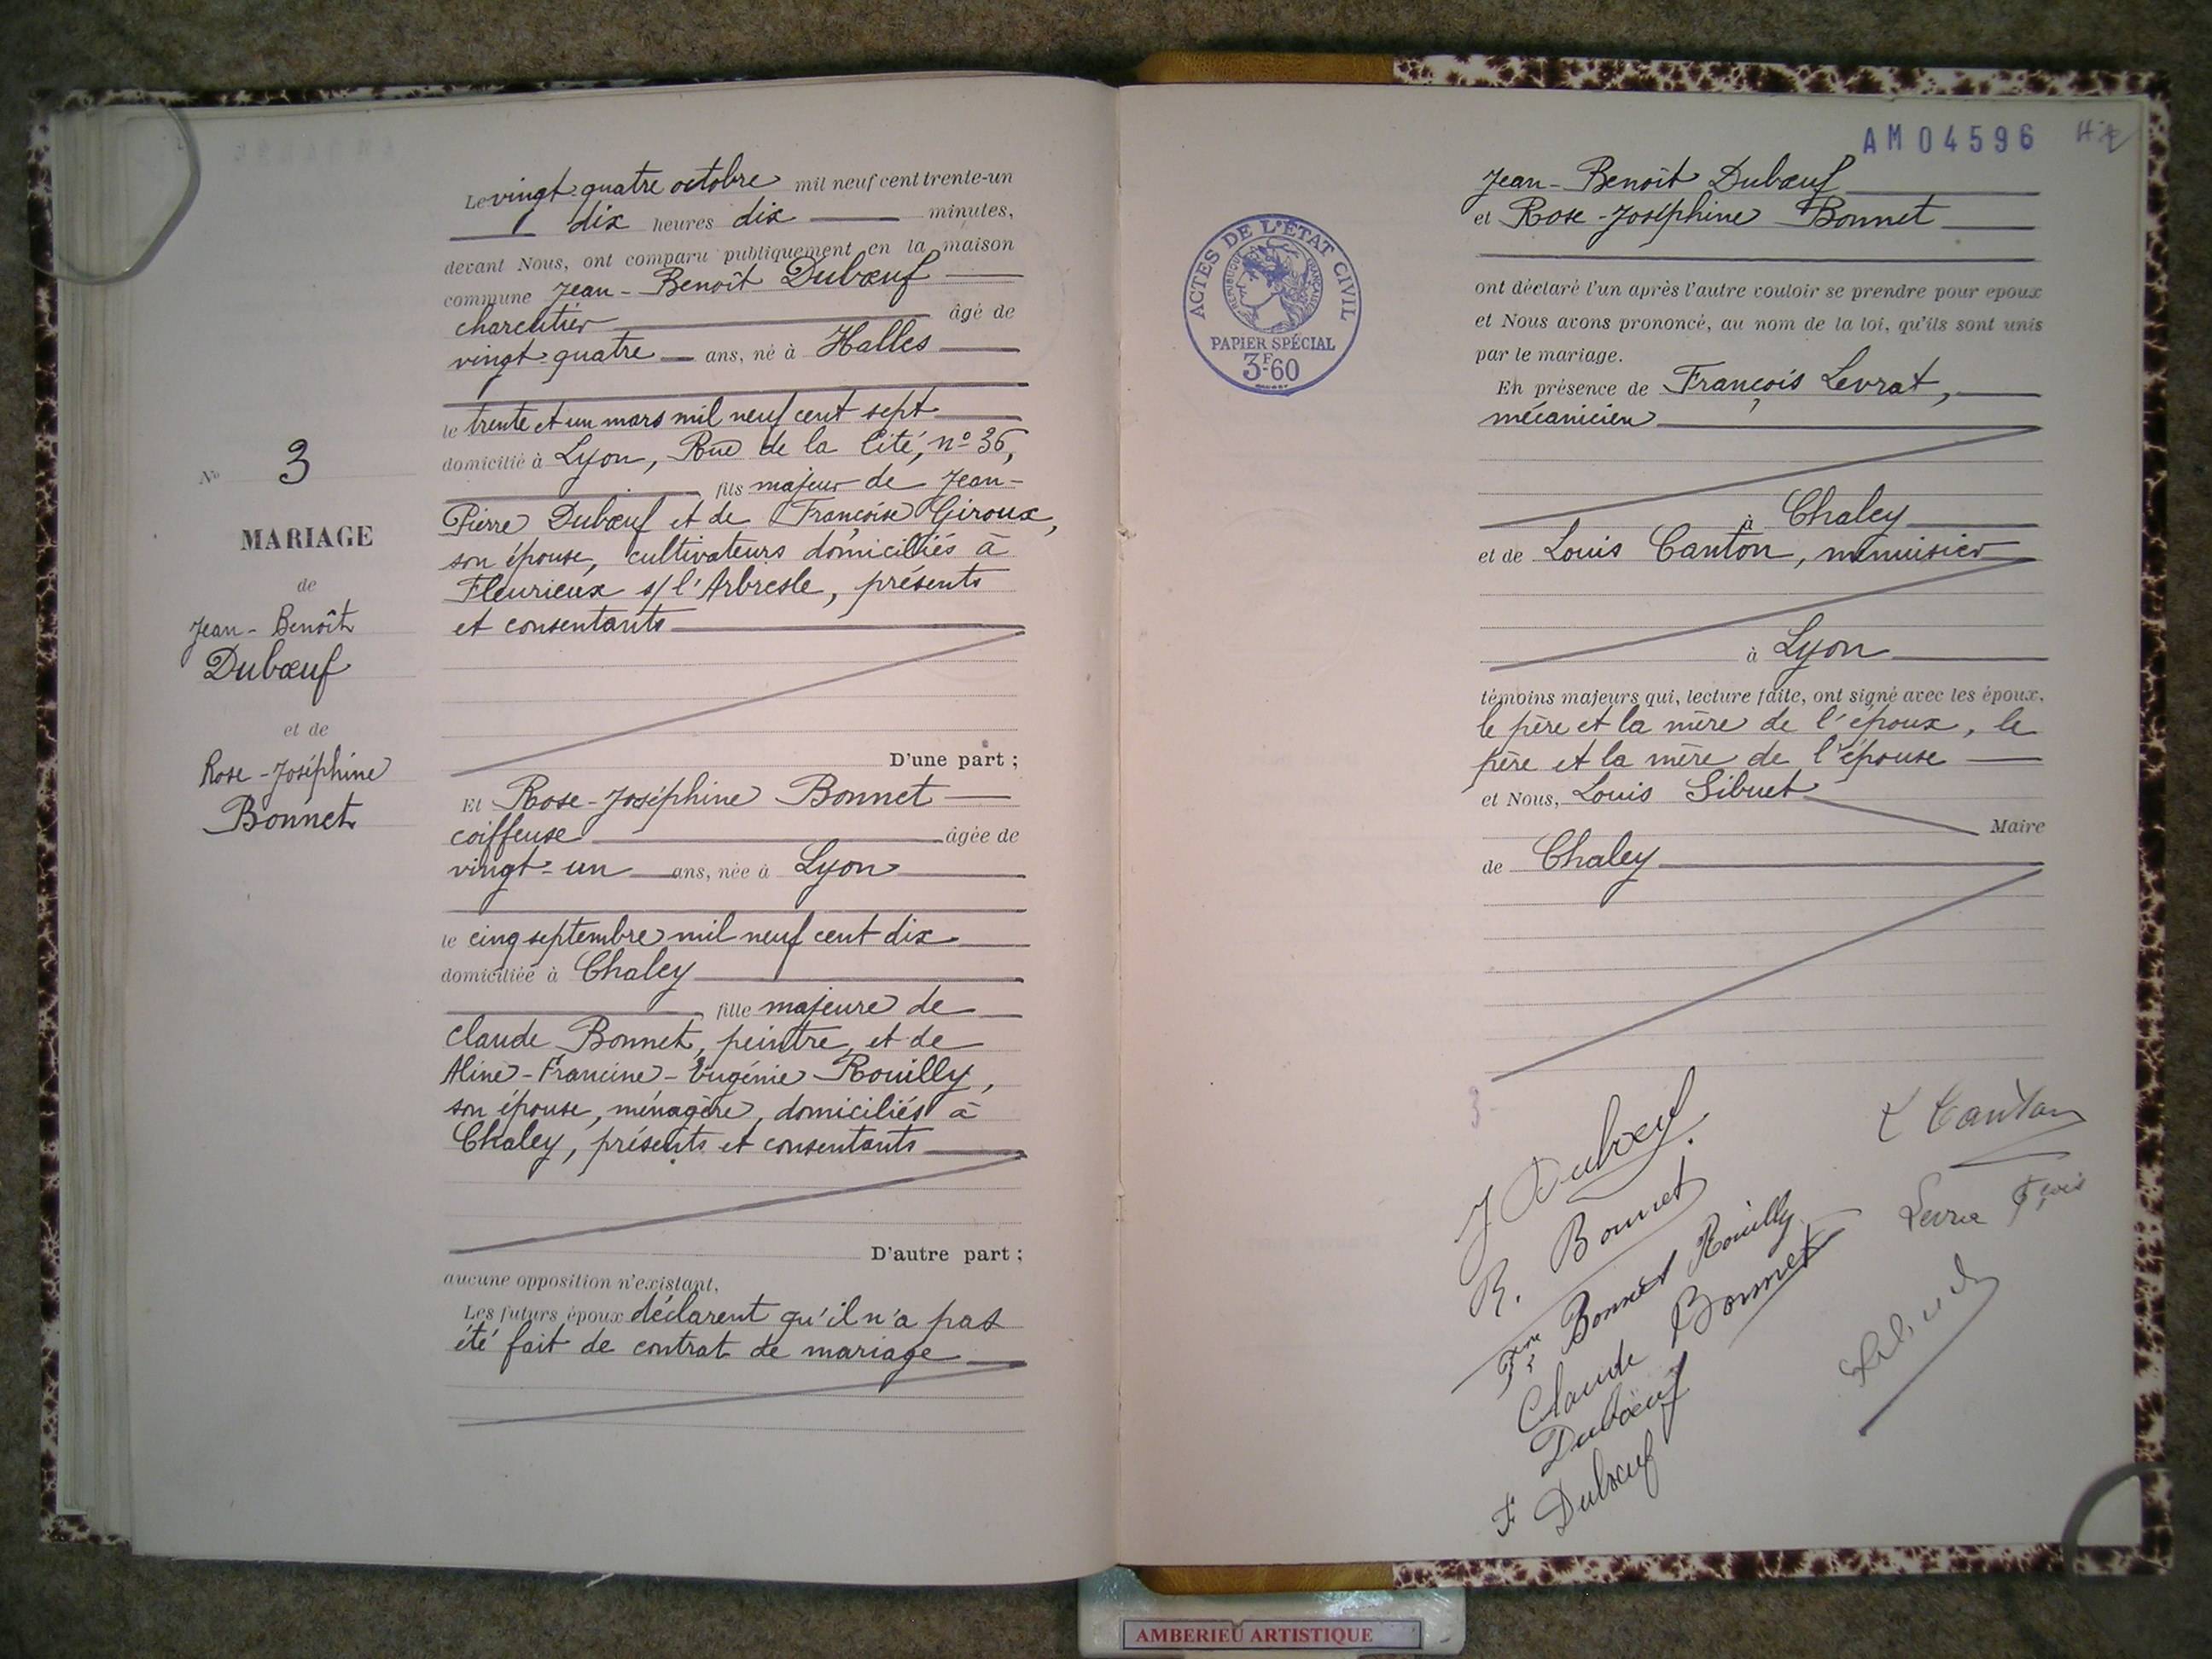 N° 3
MARIAGE
de
Jean-Benoît
Dubœuf
et de
Rose-Joséphine
Bonnet
Le vingt-quatre octobre mil neuf cent trente-un
dix heures dix minutes,
devant Nous, ont comparu publiquement en la maison
commune Jean-Benoît Dubœuf
charcutier âgé de
vingt-quatre ans, né à Halles
le trente et un mars mil neuf cent sept
domicilié à Lyon, Rue de la Cité, n° 36,
fils majeur de Jean-
Pierre Dubœuf et de Françoise Giroux,
son épouse, cultivateurs domiciliés à
Fleurieux s/ l'Arbresle, présents
et consentants
D'une part ;
Et Rose-Joséphine Bonnet
coiffeuse âgée de
vingt-un ans, née à Lyon
le cinq septembre mil neuf cent dix
domiciliée à Chaley
fille majeure de
Claude Bonnet, peintre, et de
Aline-Francine-Eugénie Rouilly,
son épouse, ménagère, domiciliés à
Chaley, présents et consentants
D'autre part ;
aucune opposition n'existant,
Les futurs époux déclarent qu'il n'a pas
été fait de contrat de mariage
AM04596
ACTES DE L'ÉTAT CIVIL
RÉPUBLIQUE FRANÇAISE
PAPIER SPÉCIAL
3F60
Jean-Benoît Dubœuf
et Rose-Joséphine Bonnet
ont déclaré l'un après l'autre vouloir se prendre pour époux
et Nous avons prononcé, au nom de la loi, qu'ils sont unis
par le mariage.
En présence de François Levrat,
mécanicien
à Chaley
et de Louis Canton, menuisier
à Lyon
témoins majeurs qui, lecture faite, ont signé avec les époux,
le père et la mère de l'époux, le
père et la mère de l'épouse
et Nous, Louis Sibuet
Maire
de Chaley
3
J Dubœuf
R. Bonnet
Fme Bonnet Rouilly
Claude Bonnet
Dubœuf
F Dubœuf
L Canton
Levra Fçois
AMBERIEU ARTISTIQUE